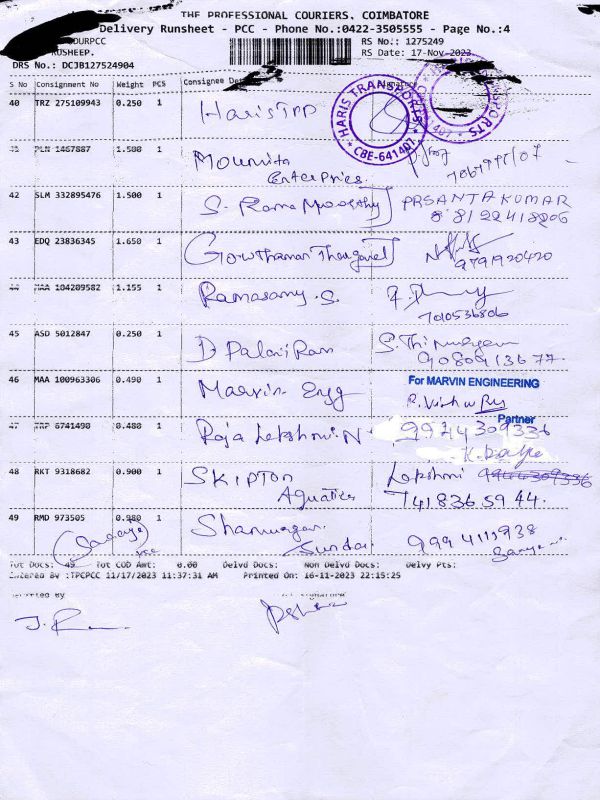 THE PROFESSIONAL COURIERS, COIMBATORE
Delivery Runsheet - PCC - Phone No.:0422-3505555 - Page No.:4
DURPCC
RUSHEEP.
RS No.: 1275249
RS Date: 17-Nov-2023
DRS No.: DCJB127524904
S No Consignment No Weight PCS Consignee
40 TRZ 275109943 0.250 1 Haris TPP
HARIS TRANSPORTS
CBE-641407
41 PLN 1467887 1.500 1 Moumita
Enterprices
42 SLM 332895476 1.500 1 S. Rama Moorthy PRSANTA KUMAR
8122418206
43 EDQ 23836345 1.650 1 Gowthaman Thangavel
9791920420
44 MAA 104209582 1.155 1 Ramasamy.S.
7010536806
45 ASD 5012847 0.250 1 D Palani Ram S.Thirumurugan
9080913677.
46 MAA 100963306 0.490 1 Marvin Engg For MARVIN ENGINEERING
Partner
47 TRP 6741490 0.480 1 Raja Lekshmi.N 9944309336
48 RKT 9318682 0.900 1 SKIPTON Lekshmi 9944309336
Aquatics 7418365944.
49 RMD 973505 0.980 1 Shanmugan 9994111938
Sundar
Tot Docs: 49 Tot COD Amt: 0.00 Delvd Docs: Non Delvd Docs: Delvy Pts:
Entered By :TPCPCC 11/17/2023 11:37:31 AM Printed On: 16-11-2023 22:15:25